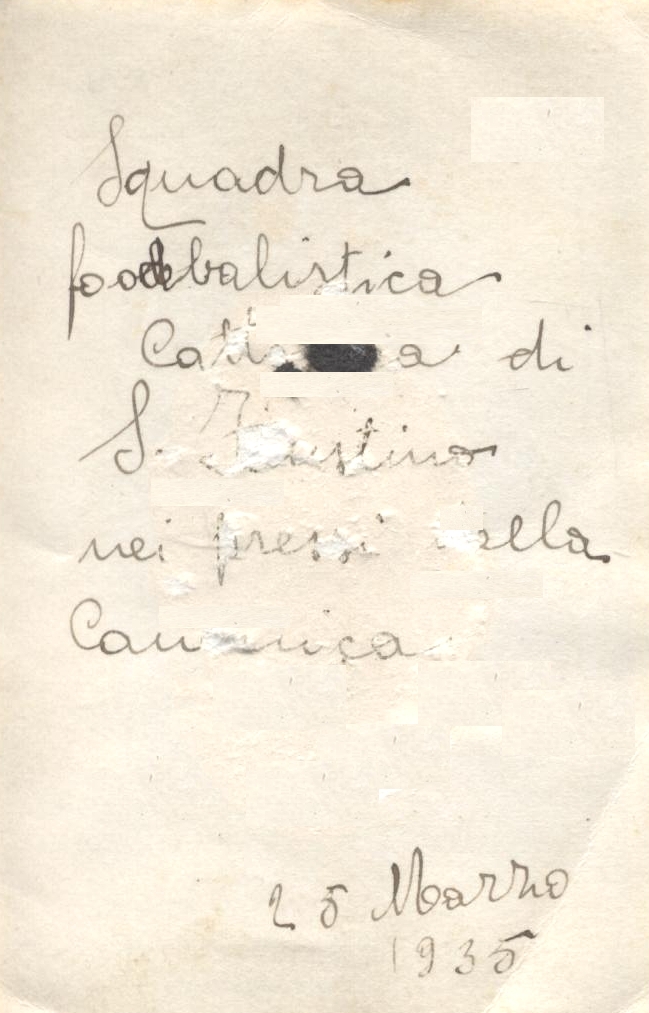 Squadra
footbalistica
di
S. Faustino
nei pressi della
Canonica
25 Marzo
1935